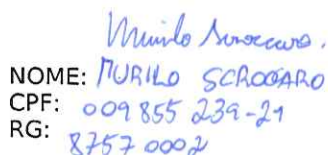 Murilo Scroccaro.
NOME: MURILO SCROCCARO
CPF: 009855239-21
RG: 87570002